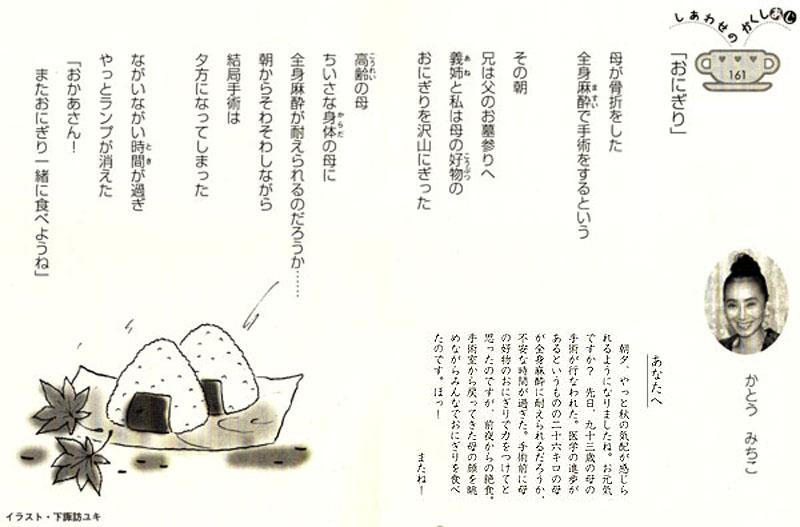 しあわせのかくしあじ
161
「おにぎり」
母が骨折をした
全身麻酔で手術をするという
その朝
兄は父のお墓参りへ
義姉と私は母の好物の
おにぎりを沢山にぎった
高齢の母
ちいさな身体の母に
全身麻酔が耐えられるのだろうか……
朝からそわそわしながら
結局手術は
夕方になってしまった
ながいながい時間が過ぎ
やっとランプが消えた
「おかあさん！
またおにぎり一緒に食べようね」
かとう みちこ
あなたへ
朝夕、やっと秋の気配が感じら
れるようになりましたね。お元気
ですか？ 先日、九十三歳の母の
手術が行なわれた。医学の進歩が
あるというものの二十六キロの母
が全身麻酔に耐えられるだろうか、
不安な時間が過ぎた。手術前に母
の好物のおにぎりで力をつけてと
思ったのですが、前夜からの絶食。
手術室から戻ってきた母の顔を眺
めながらみんなでおにぎりを食べ
たのです。ほっ！
またね！
イラスト・下諏訪ユキ